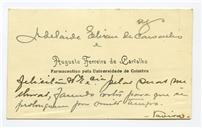 de
Adelaide Elisia de Carvalho
e
Augusto Ferreira de Carvalho
Farmaceutico pela Universidade de Coimbra
pelas suas me-
lhoras, fazendo votos para que se
prolonguem por muito tempo.
Tavira